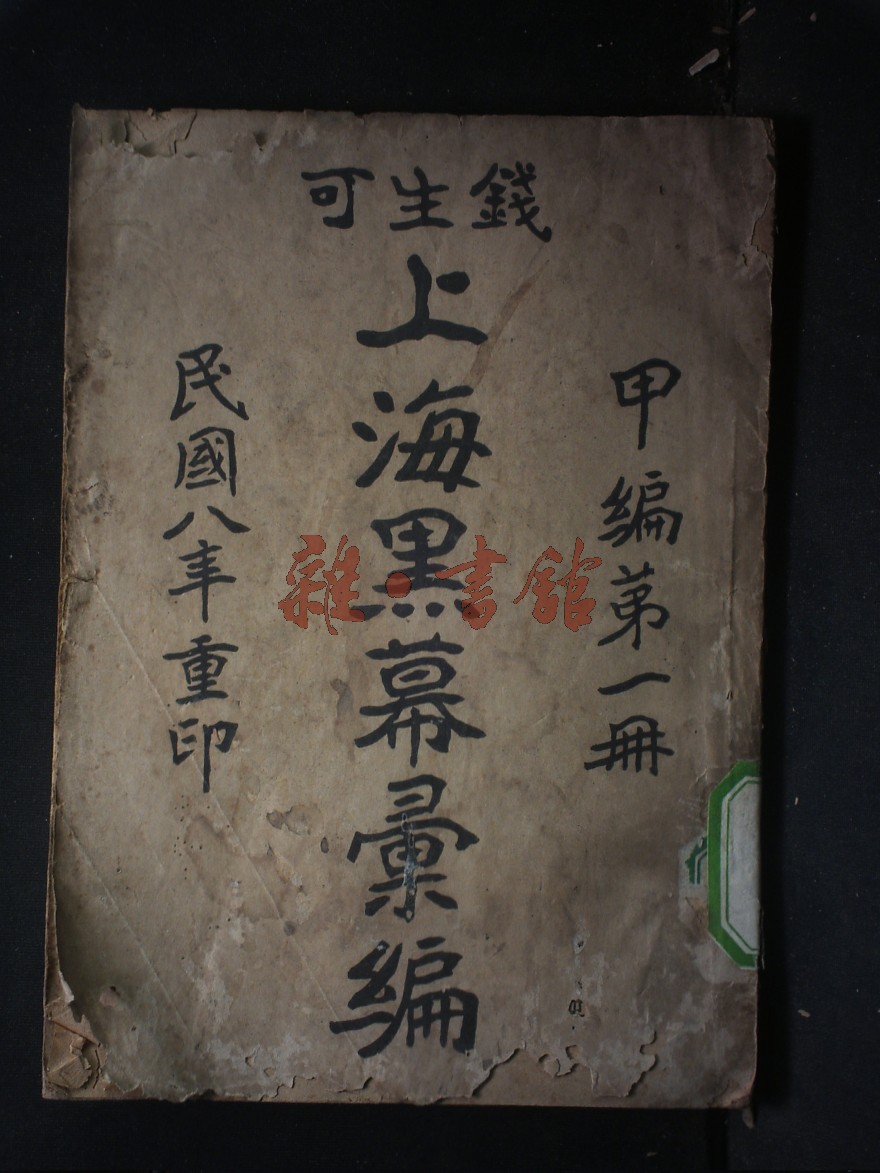 錢生可
甲編第一冊
上海黑幕彙編
民國八年重印
雜·書館